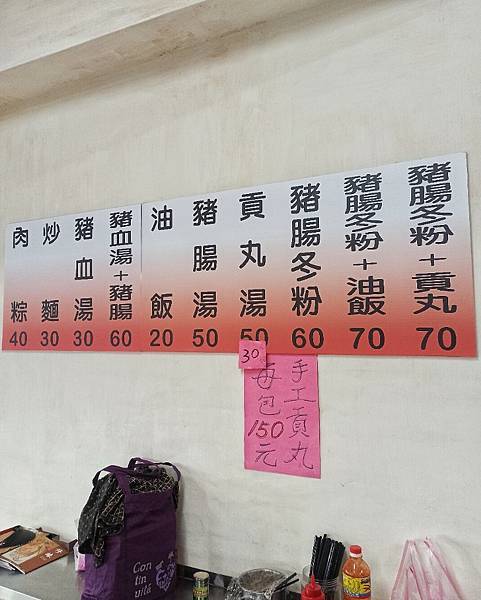 豬腸冬粉+貢丸 70
豬腸冬粉+油飯 70
豬腸冬粉 60
貢丸湯 50
30
豬腸湯 50
油飯 20
豬血湯+豬腸 60
豬血湯 30
炒麵 30
肉粽 40
手工貢丸
每包150元
Con
tin
uité